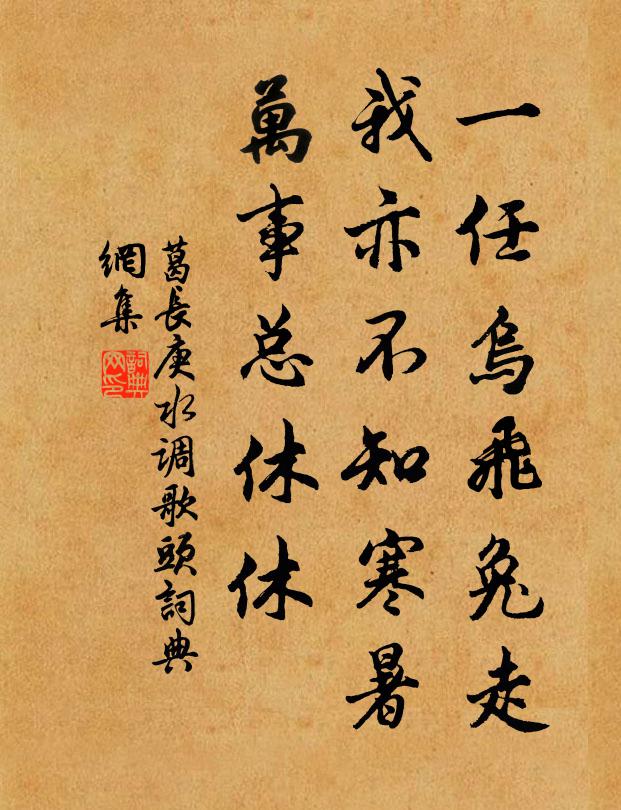 一任烏飛兔走
我亦不知寒暑
萬事总休休
葛長庚水调歌頭詞典
網集
詞典
网印